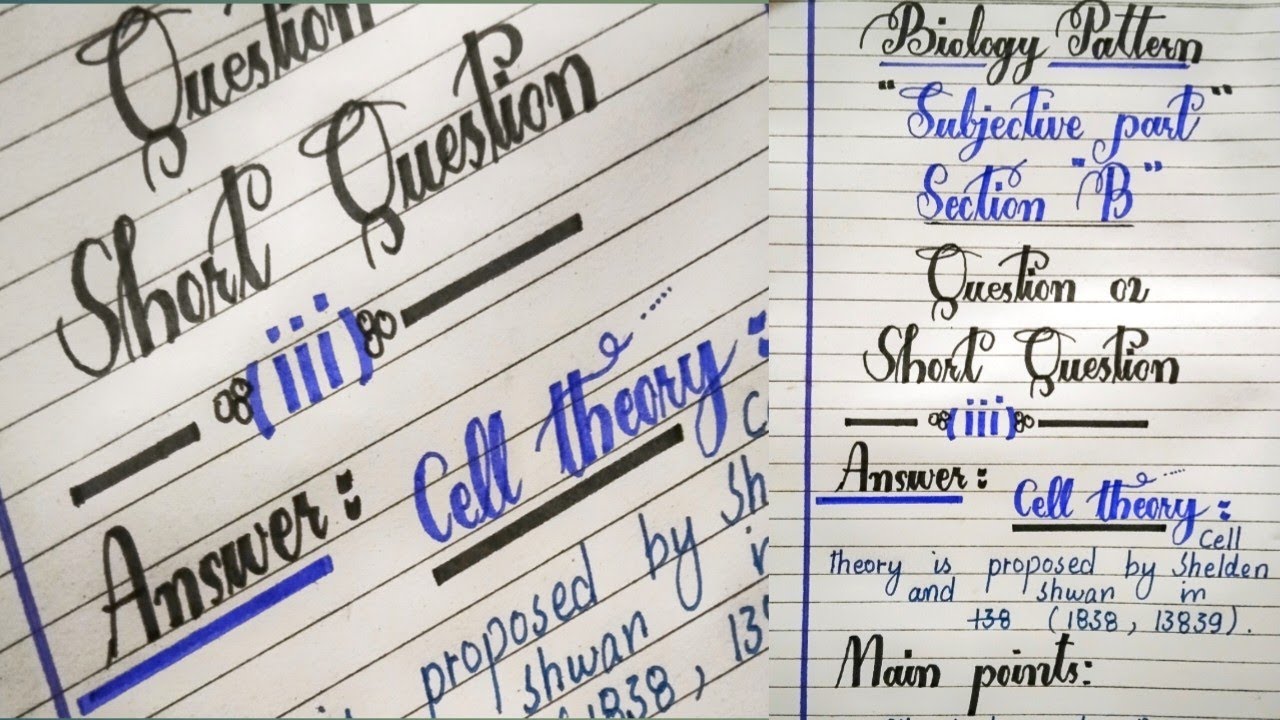 Question
Short Question
(iii)
Answer: Cell theory:
proposed by Sh
shwan in
(1838, 13
Biology Pattern
"Subjective part"
Section "B"
Question 02
Short Question
(iii)
Answer:
Cell theory:
Cell
theory is proposed by Shelden
and shwan in
138 (1838, 13839).
Main points: